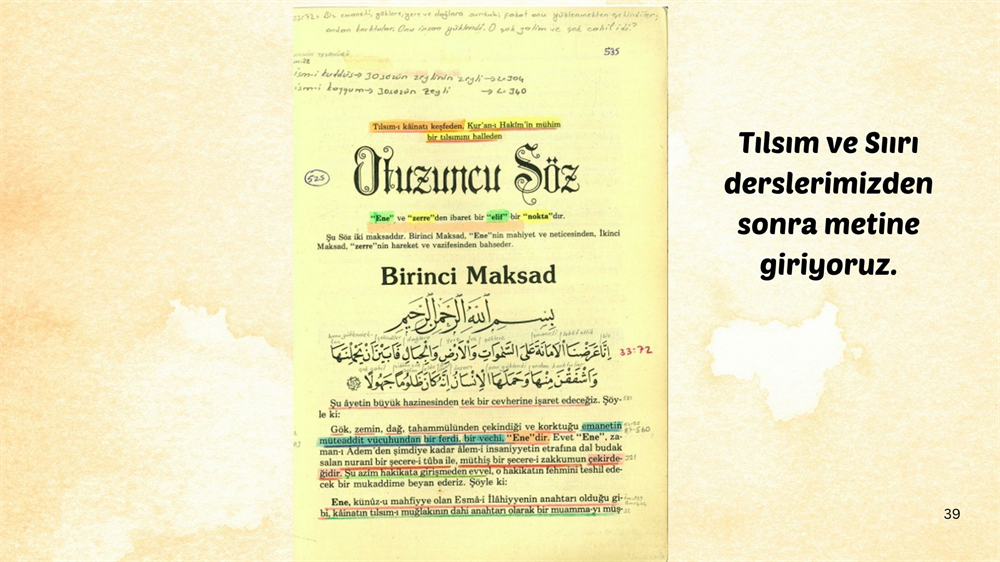 33:72 > Biz emaneti, göklere, yere ve dağlara sunduk; fakat onu yüklenmekten çekindiler,
ondan korktular. Onu insan yüklendi. O çok zalim ve çok cahildi?
535
ism-i kuddüs → 30 sözün zeylinin zeyli → L304
ism-i kayyum → 30 sözün zeyli → L340
Tılsım-ı kâinatı keşfeden, Kur'an-ı Hakîm'in mühim
bir tılsımını halleden
525
Otuzuncu Söz
"Ene" ve "zerre"den ibaret bir "elif" bir "nokta"dır.
Şu Söz iki maksaddır. Birinci Maksad, "Ene"nin mahiyet ve neticesinden, İkinci
Maksad, "zerre"nin hareket ve vazifesinden bahseder.
Birinci Maksad
بِسْــمِ اللّٰهِ الرَّحْمٰنِ الرَّحِيمِ
اِنَّا عَرَضْنَا اْلاَمَانَةَ عَلَى السَّمٰوَاتِ وَاْلاَرْضِ وَالْجِبَالِ فَاَبَيْنَ اَنْ يَحْمِلْنَهَا 33:72
وَاَشْفَقْنَ مِنْهَا وَحَمَلَهَا اْلاِنْسَانُ اِنَّهُ كَانَ ظَلُومًا جَهُولاً
Şu âyetin büyük hazinesinden tek bir cevherine işaret edeceğiz. Şöy-
le ki:
Gök, zemin, dağ, tahammülünden çekindiği ve korktuğu emanetin
müteaddit vücuhundan bir ferdi, bir vechi, "Ene"dir. Evet "Ene", za-
man-ı Âdem'den şimdiye kadar âlem-i insaniyyetin etrafına dal budak
salan nuranî bir şecere-i tûba ile, müthiş bir şecere-i zakkumun çekirde-
ğidir. Şu azîm hakikata girişmeden evvel, o hakikatın fehmini teshil ede-
cek bir mukaddime beyan ederiz. Şöyle ki:
Ene, künûz-u mahfiyye olan Esmâ-i İlâhiyyenin anahtarı olduğu gi-
bi, kâinatın tılsım-ı muğlakının dahi anahtarı olarak bir muamma-yı müş-
Tılsım ve Sıırı
derslerimizden
sonra metine
giriyoruz.
39